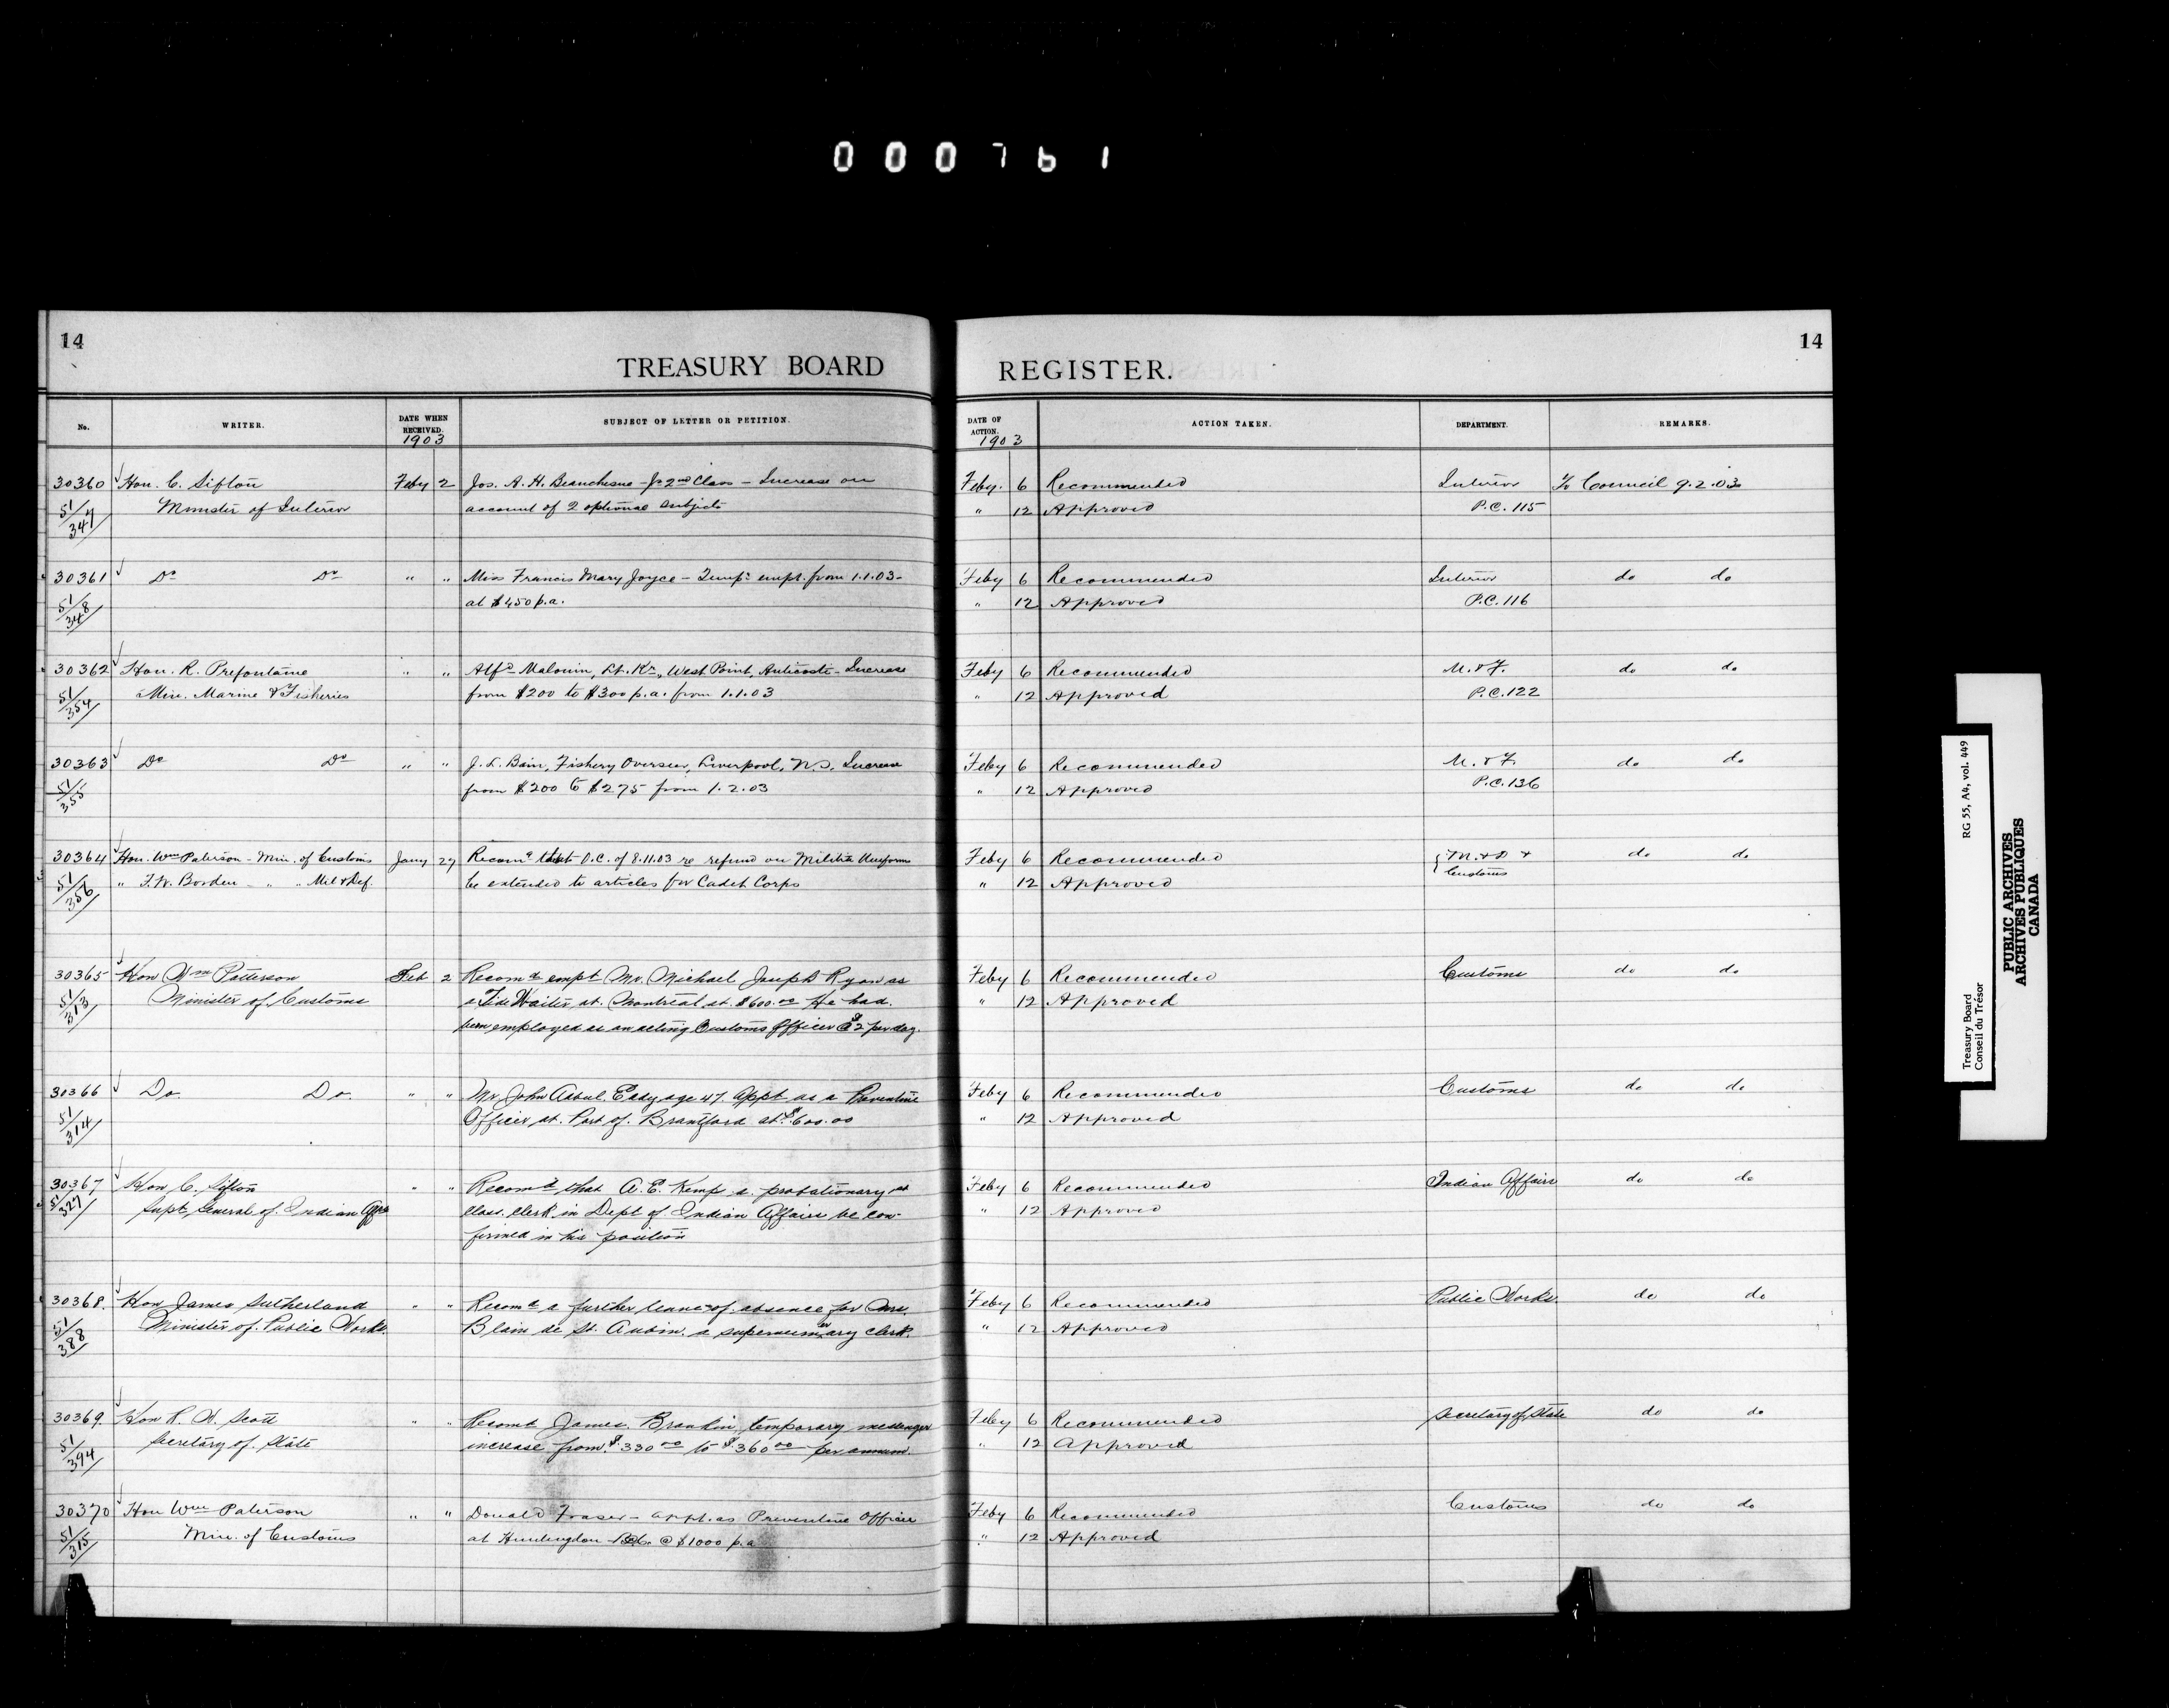 000761
14
14
TREASURY BOARD REGISTER.
No. WRITER. DATE WHEN RECEIVED. 1903 SUBJECT OF LETTER OR PETITION. DATE OF ACTION. 1903 ACTION TAKEN. DEPARTMENT. REMARKS.
30360 Hon. C. Sifton Feby 2 Jos. A. H. Beauchesne - Jr 2nd Class - Increase on Feby. 6 Recommended Interior To Council 9.2.03
51/347 Minister of Interior account of 2 optional subjects " 12 Approved P.C. 115
30361 Do Do " " Miss Francis Mary Joyce - Tempy empt. from 1.1.03- Feby 6 Recommended Interior do do
51/348 at $450 p.a. " 12 Approved P.C. 116
30362 Hon. R. Prefontaine " " Alfd Malouin, Lt. Kr., West Point, Anticosti - Increase Feby 6 Recommended M. & F. do do
51/354 Min. Marine & Fisheries from $200 to $300 p.a. from 1.1.03 " 12 Approved P.C. 122
30363 Do Do " " J. L. Bain, Fishery Overseer, Liverpool, N.S. Increase Feby 6 Recommended M. & F. do do
51/355 from $200 to $275 from 1.2.03 " 12 Approved P.C. 136
30364 Hon. Wm Paterson - Min. of Customs Jany 27 Recomd that O.C. of 8.11.03 re refund on Militia Uniforms Feby 6 Recommended M. & D & do do
51/356 " F. W. Borden - " " Mil & Def. be extended to articles for Cadet Corps " 12 Approved Customs
30365 Hon Wm Patterson Feb 2 Recomd empt Mr. Michael Joseph Ryan as Feby 6 Recommended Customs do do
51/313 Minister of Customs a Tide Waiter at Montreal at $600.00 He had " 12 Approved
been employed as an acting Customs Officer @ $2 per day.
30366 Do. Do. " " Mr. John Eddy age 47 appt as a Preventive Feby 6 Recommended Customs do do
51/314 Officer at Port of Brantford at $600.00 " 12 Approved
30367 Hon C. Sifton " " Recomd that A. E. Kemp a probationary Feby 6 Recommended Indian Affairs do do
51/327 Supt General of Indian Affrs class clerk in Dept of Indian Affairs be con- " 12 Approved
firmed in his position
30368. Hon James Sutherland " " Recomd a further leave of absence for Mrs. Feby 6 Recommended Public Works. do do
51/388 Minister of Public Works. Blain de St. Aubin. a supernumerary clerk. " 12 Approved
30369. Hon R. W. Scott " " Recomd James Brankin, temporary messenger Feby 6 Recommended Secretary of State do do
51/394 Secretary of State increase from $330.00 to $360.00 per annum. " 12 Approved
30370 Hon Wm Paterson " " Donald Fraser - appt. as Preventive Officer Feby 6 Recommended Customs do do
51/315 Min. of Customs at Huntingdon B.C. @ $1000 p.a " 12 Approved
Treasury Board RG 55, A4, vol. 449
Conseil du Trésor
PUBLIC ARCHIVES
ARCHIVES PUBLIQUES
CANADA